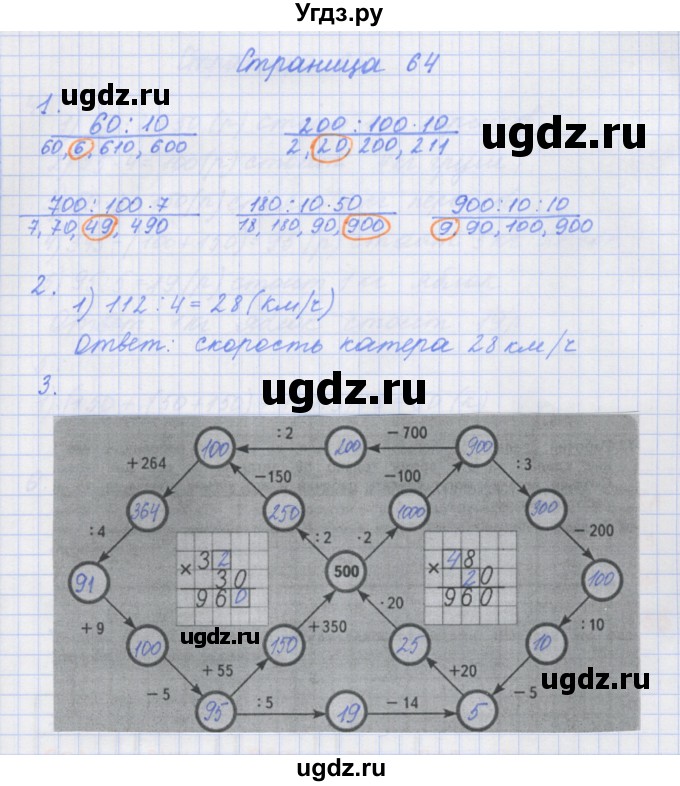 Угдз.ру
Страница 64
1.
ugdz.ru
60 : 10
60, 6, 610, 600
200 : 100 · 10
2, 20, 200, 211
700 : 100 · 7
7, 70, 49, 490
180 : 10 · 50
18, 180, 90, 900
900 : 10 : 10
9, 90, 100, 900
2.
1) 112 : 4 = 28 (км/ч)
Ответ: скорость катера 28 км/ч
3.
ugdz.ru
100 : 2 200 − 700 900
+ 264 − 150 − 100 : 3
364 250 1000 300
: 4 : 2 · 2 − 200
91 500 100
× 32
30
960
× 48
20
960
+ 9 + 350 · 20 : 10
ugdz.ru
100 150 25 10
ugdz.ru
− 5 + 55 + 20 − 5
95 : 5 19 − 14 5
ugdz.ru